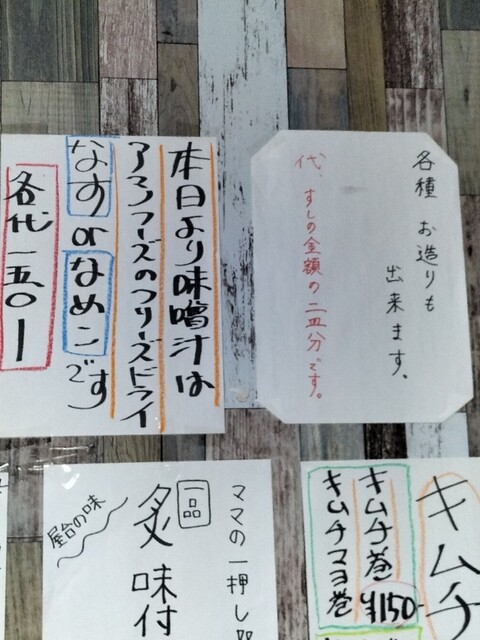 各種 お造りも
出来ます。
代、すしの金額の二皿分です。
本日より味噌汁は
アマノフーズのフリーズドライ
なす or なめこです
各代 一五〇ー
キムチ
キムチ巻
¥150-
キムチマヨ巻
ママの一押し!!
一品
炙 味付
屋台の味